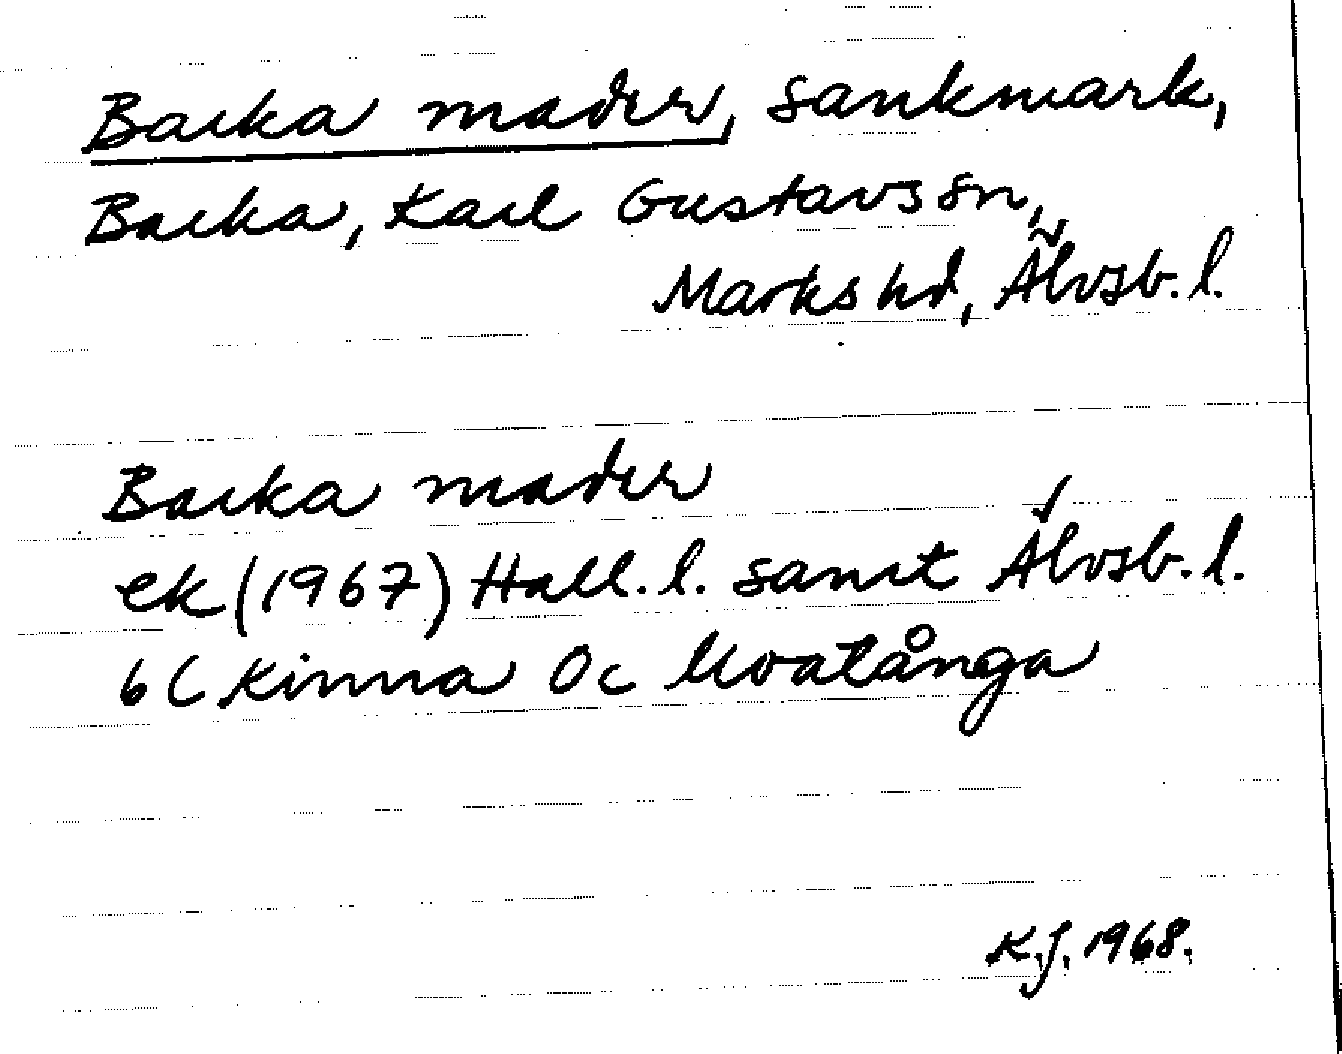 Backa mader, sankmark,
Backa, Karl Gustavs sn,
Marks hd, Älvsb. l.
Backa mader
ek (1967) Hall. l. samt Älvsb. l.
6 C Kinna 0 c Kvatånga
K.J. 1968.